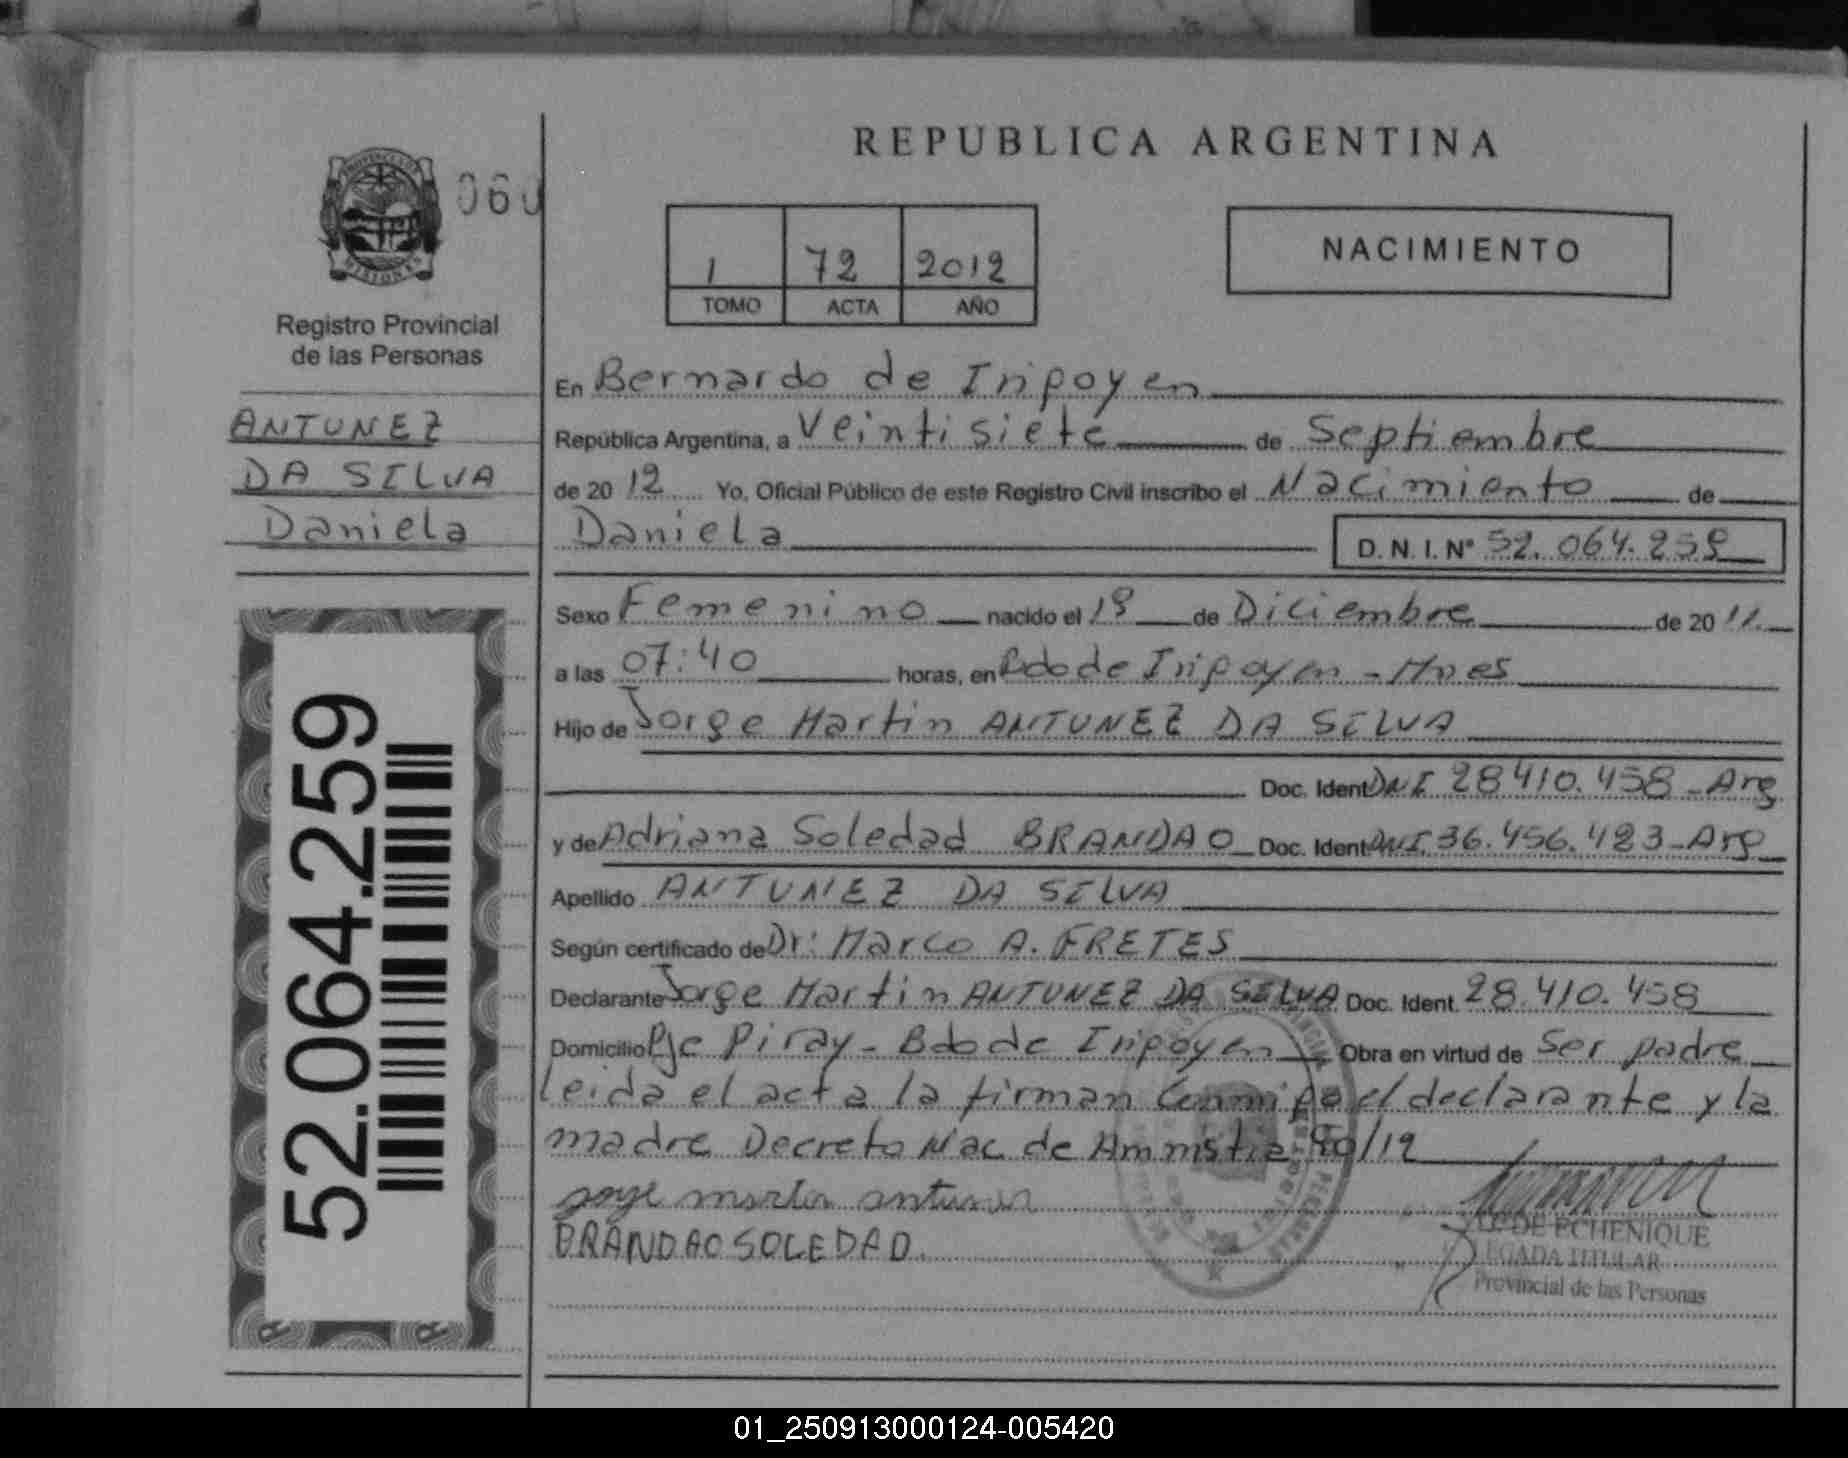 REPUBLICA ARGENTINA
060
1 72 2012
TOMO ACTA AÑO
NACIMIENTO
Registro Provincial
de las Personas
ANTUNEZ
DA SILVA
Daniela
52.064.259
En Bernardo de Iripoyen
República Argentina, a Veintisiete de Septiembre
de 20 12 Yo, Oficial Público de este Registro Civil inscribo el Nacimiento de
Daniela D. N. I. N° 52.064.259
Sexo Femenino nacido el 19 de Diciembre de 20 11
a las 07:40 horas, en Bdo de Iripoyen - Mnes
Hijo de Jorge Martin ANTUNEZ DA SILVA
Doc. Ident DNI 28410.458 - Arg
y de Adriana Soledad BRANDAO Doc. Ident DNI 36.456.423 - Arg
Apellido ANTUNEZ DA SILVA
Según certificado de Dr: Marco A. FRETES
Declarante Jorge Martin ANTUNEZ DA SILVA Doc. Ident. 28.410.458
Domicilio Pje Piray - Bdo de Iripoyen Obra en virtud de Ser padre
leida el acta la firman Conmigo el declarante y la
madre Decreto Nac de Amnistia 90/12
BRANDAO SOLEDAD.
DE ECHENIQUE
LEGADA TITULAR
Provincial de las Personas
01_250913000124-005420